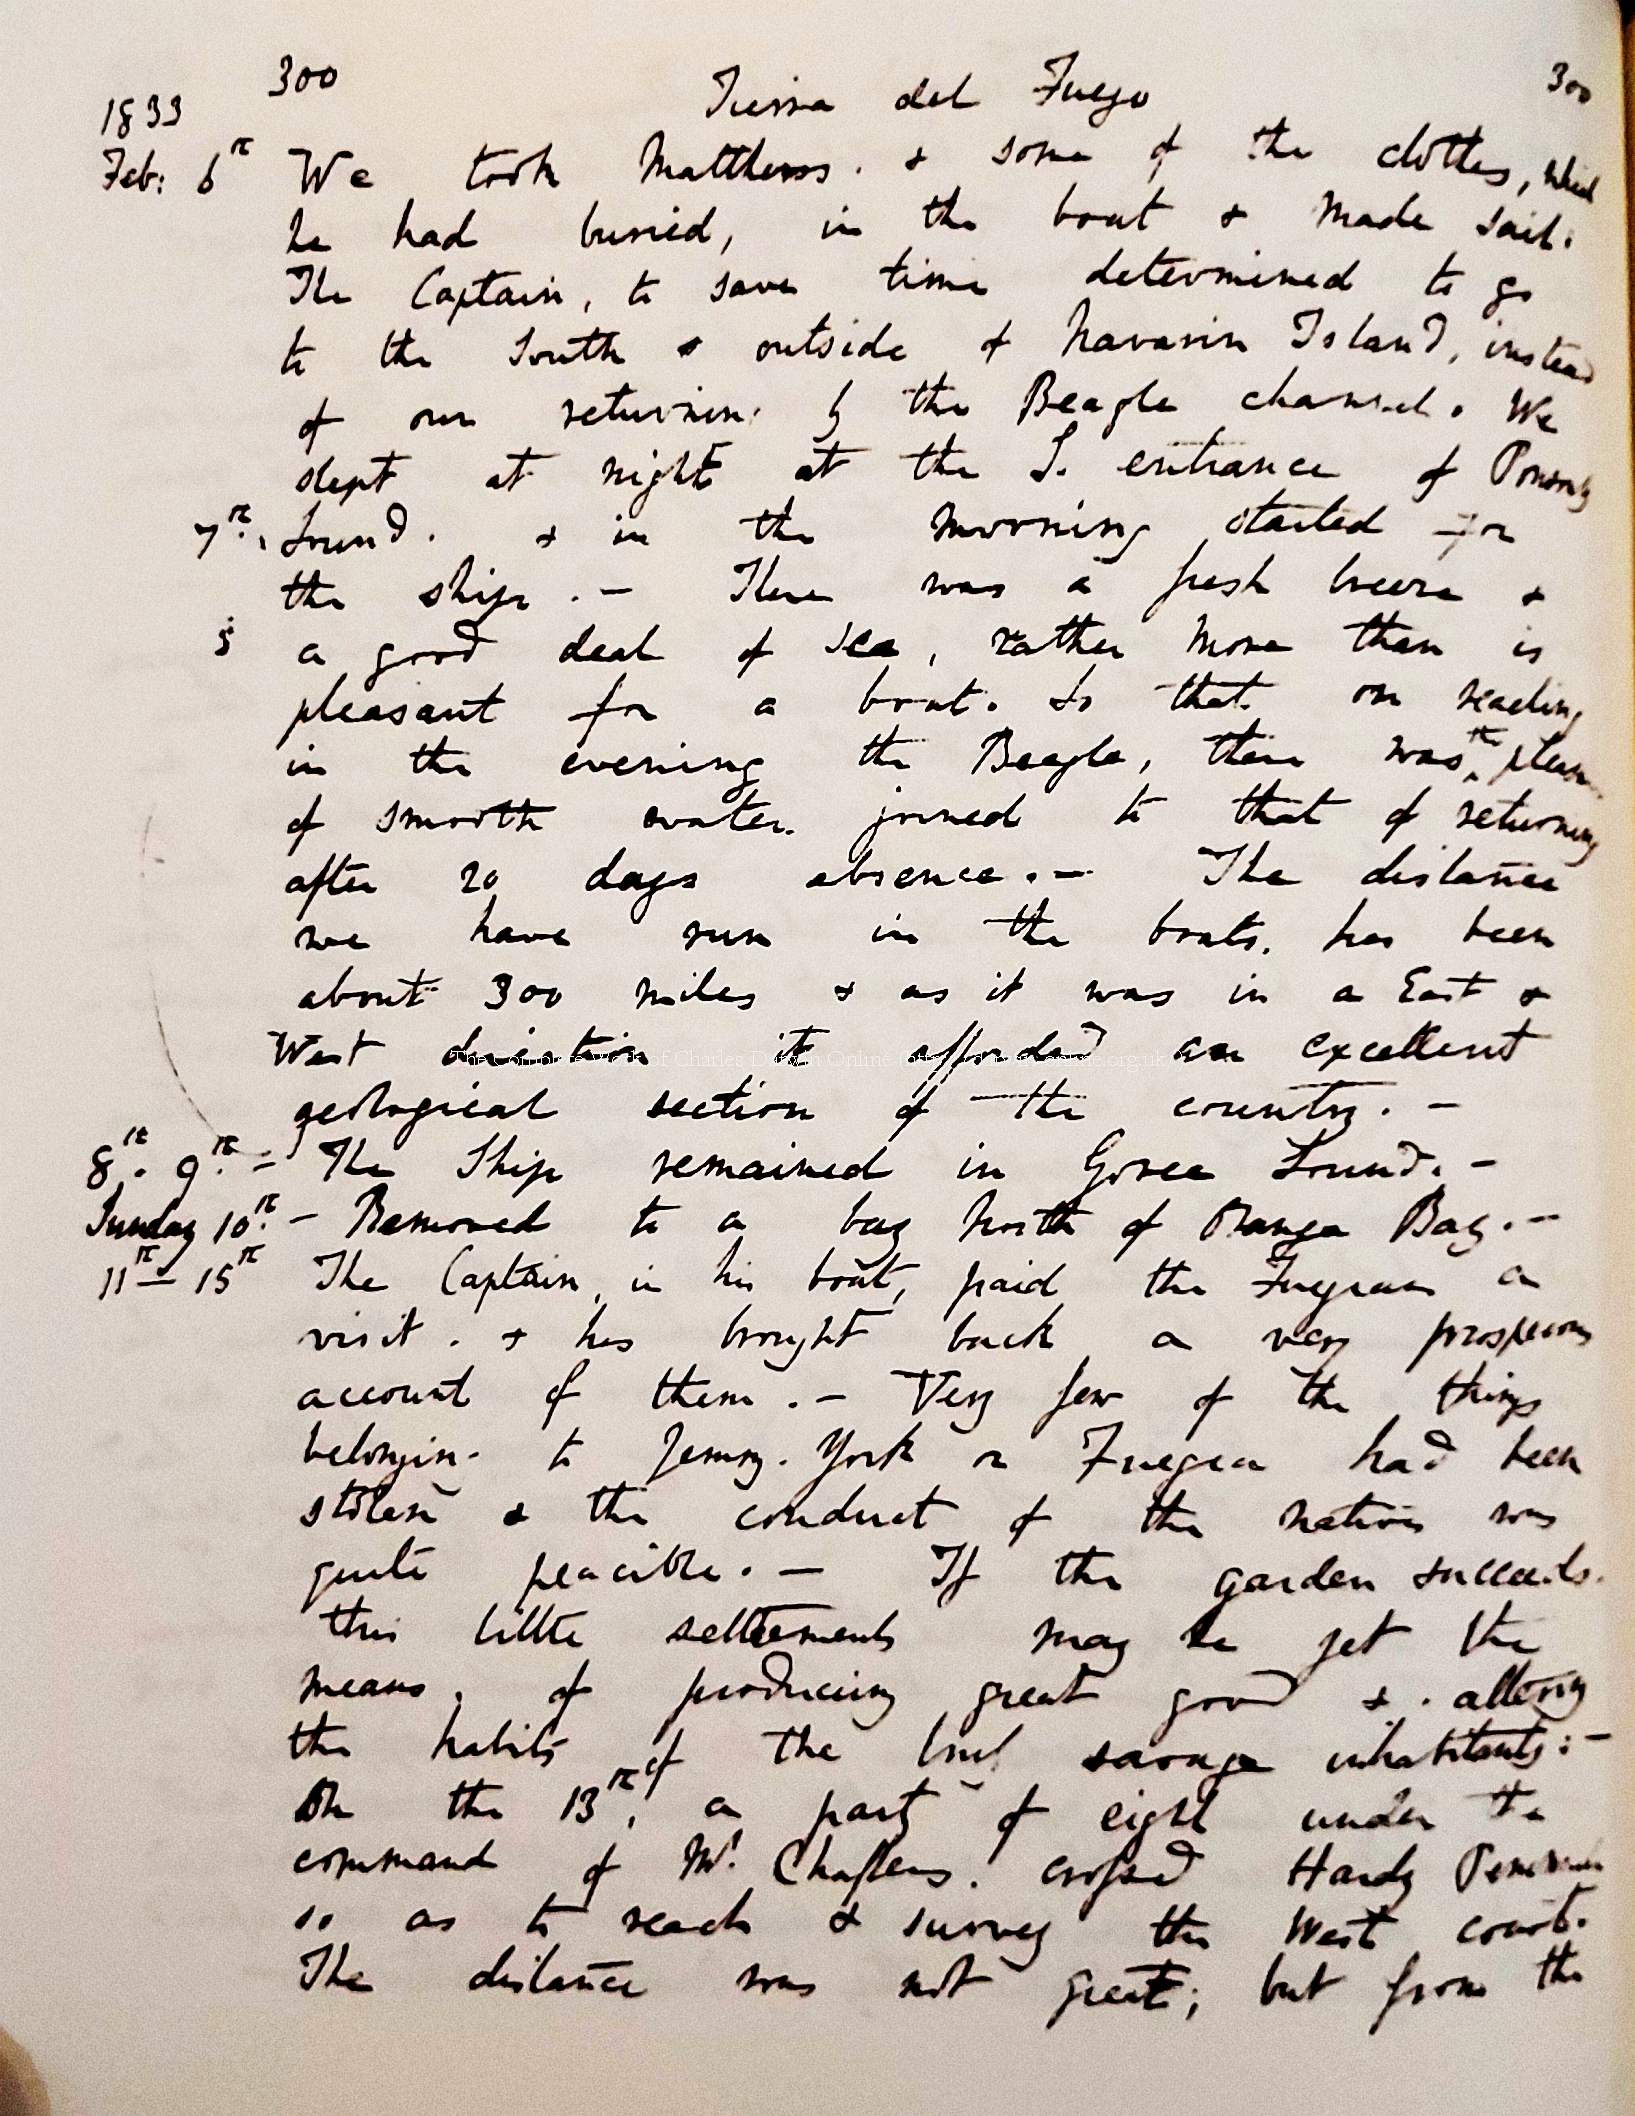 300 Tierra del Fuego 300
1833
Feb: 6th We took Matthews. & some of the clothes, which
he had buried, in the boat & made sail.
The Captain, to save time determined to go
to the South & outside of Navarin Island, instead
of our returning by the Beagle channel. We
slept at night at the S. entrance of Ponsonby
7th. Sound. & in the morning started for
the ship. — There was a fresh breeze &
a good deal of sea, rather more than is
pleasant for a boat. So that on reaching
in the evening the Beagle, there was the pleasure
of smooth water joined to that of returning
after 20 days absence. — The distance
we have run in the boats. has been
about 300 miles & as it was in a East &
West direction it afforded an excellent
geological section of the country. —
The Complete Work of Charles Darwin Online
8th. 9th. — The Ship remained in Goree Sound. —
Sunday 10th. — Removed to a bay North of Orange Bay. —
11th — 15th The Captain, in his boat, paid the Fuegians a
visit. & has brought back a very prosperous
account of them. — Very few of the things
belonging to Jemmy. York or Fuegia had been
stolen & the conduct of the natives was
quite peacible. — If the garden succeeds.
this little settlement may be yet the
means, of producing great good & altering
the habits of the truly savage inhabitants: —
On the 13th. a party of eight under the
command of Mr. Chaffers. crossed Hardy Peninsula
so as to reach & survey the West coast.
The distance was not great; but from the